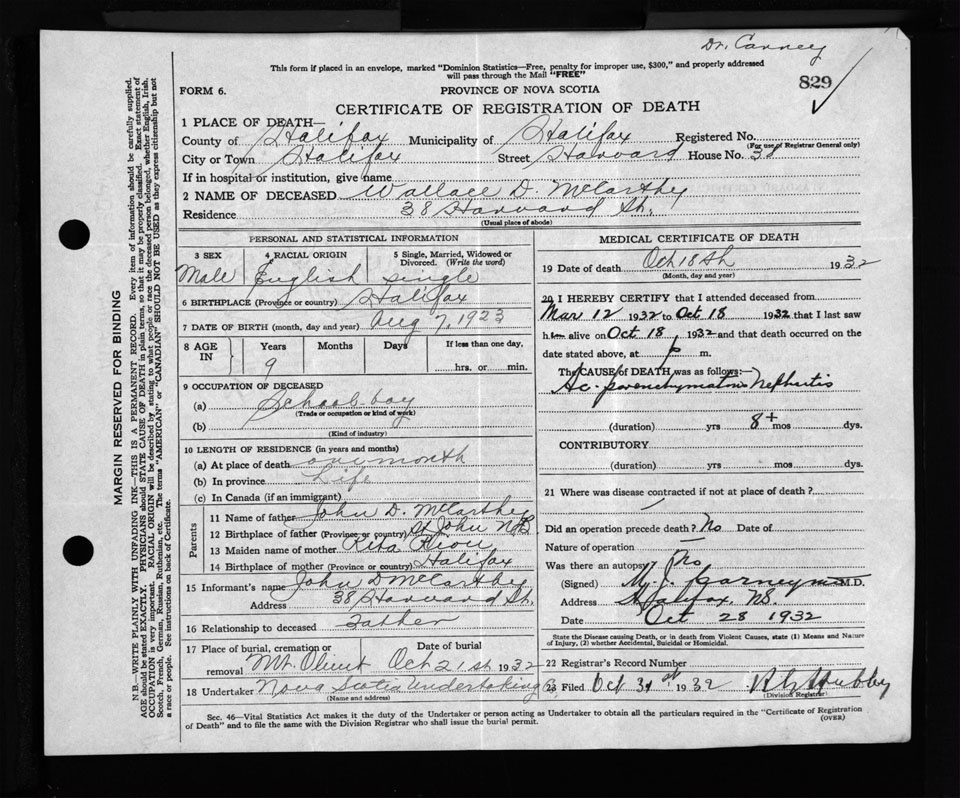 Dr. Carney
This form if placed in an envelope, marked "Dominion Statistics—Free, penalty for improper use, $300," and properly addressed
will pass through the Mail "FREE"
829
FORM 6.
PROVINCE OF NOVA SCOTIA
CERTIFICATE OF REGISTRATION OF DEATH
1 PLACE OF DEATH—
County of Halifax Municipality of Halifax Registered No.
(For use of Registrar General only)
City or Town Halifax Street Harvard House No. 38
If in hospital or institution, give name
2 NAME OF DECEASED Wallace D. McCarthy
Residence 38 Harvard St.
(Usual place of abode)
PERSONAL AND STATISTICAL INFORMATION
3 SEX 4 RACIAL ORIGIN 5 Single, Married, Widowed or Divorced. (Write the word)
Male English single
6 BIRTHPLACE (Province or country) Halifax
7 DATE OF BIRTH (month, day and year) Aug 7, 1923
8 AGE IN Years Months Days If less than one day,
9 hrs. or min.
9 OCCUPATION OF DECEASED
(a) School-boy
(Trade or occupation or kind of work)
(b)
(Kind of industry)
10 LENGTH OF RESIDENCE (in years and months)
(a) At place of death one month
(b) In province Life
(c) In Canada (if an immigrant)
Parents
11 Name of father John D. McCarthy
12 Birthplace of father (Province or country) St John N.B
13 Maiden name of mother Rita
14 Birthplace of mother (Province or country) Halifax
15 Informant's name John D McCarthy
Address 38 Harvard St.
16 Relationship to deceased Father
17 Place of burial, cremation or removal Date of burial
Mt. Olivet Oct 21st 1932
18 Undertaker Nova Scotia Undertaking Co
(Name and address)
MEDICAL CERTIFICATE OF DEATH
19 Date of death Oct 18th 1932
(Month, day and year)
20 I HEREBY CERTIFY that I attended deceased from
Mar 12 1932 to Oct 18 1932 that I last saw
him alive on Oct 18 1932 and that death occurred on the
date stated above, at p m.
The CAUSE of DEATH was as follows:
Ac. parenchymatous Nephritis
(duration) yrs 8+ mos dys.
CONTRIBUTORY
(duration) yrs mos dys.
21 Where was disease contracted if not at place of death?
Did an operation precede death? No Date of
Nature of operation
Was there an autopsy? No
(Signed) M. J. Carney M.D.
Address Halifax, N.S.
Date Oct 28 1932
State the Disease causing Death, or in death from Violent Causes, state (1) Means and Nature
of Injury, (2) whether Accidental, Suicidal or Homicidal.
22 Registrar's Record Number
23 Filed Oct 31st 1932
(Division Registrar)
Sec. 46—Vital Statistics Act makes it the duty of the Undertaker or person acting as Undertaker to obtain all the particulars required in the "Certificate of Registration
of Death" and to file the same with the Division Registrar who shall issue the burial permit.
(OVER)
MARGIN RESERVED FOR BINDING
N.B.—WRITE PLAINLY WITH UNFADING INK—THIS IS A PERMANENT RECORD. Every item of information should be carefully supplied.
AGE should be stated EXACTLY. PHYSICIANS should STATE CAUSE OF DEATH in plain terms, so that it may be properly classified. Exact statement of
OCCUPATION is very important. RACIAL ORIGIN will be described by stating to what people or race the deceased person belonged, whether English, Irish,
Scotch, French, German, Russian, Ruthenian, etc. The terms "AMERICAN" or "CANADIAN" SHOULD NOT BE USED as they express citizenship but not
a race or people. See instructions on back of Certificate.